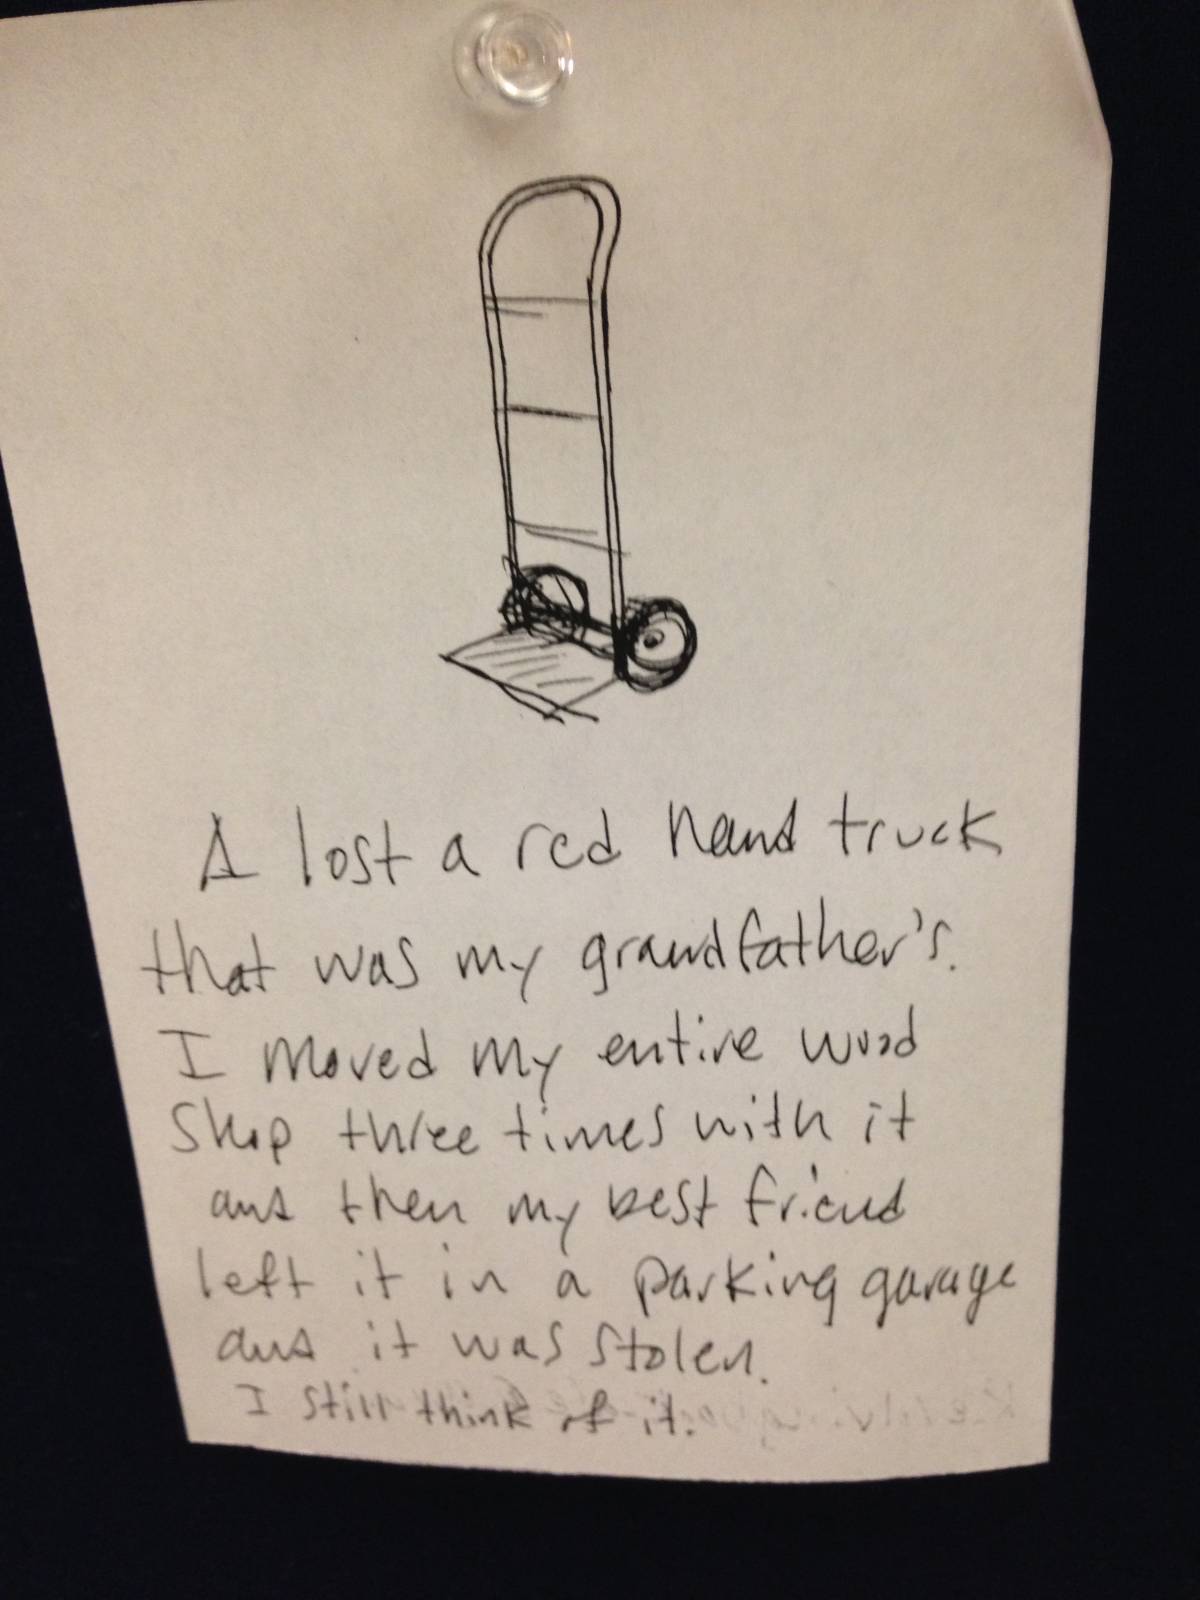 A lost a red hand truck
that was my grandfather's.
I moved my entire wood
shop three times with it
and then my best friend
left it in a parking garage
and it was stolen.
I still think of it.